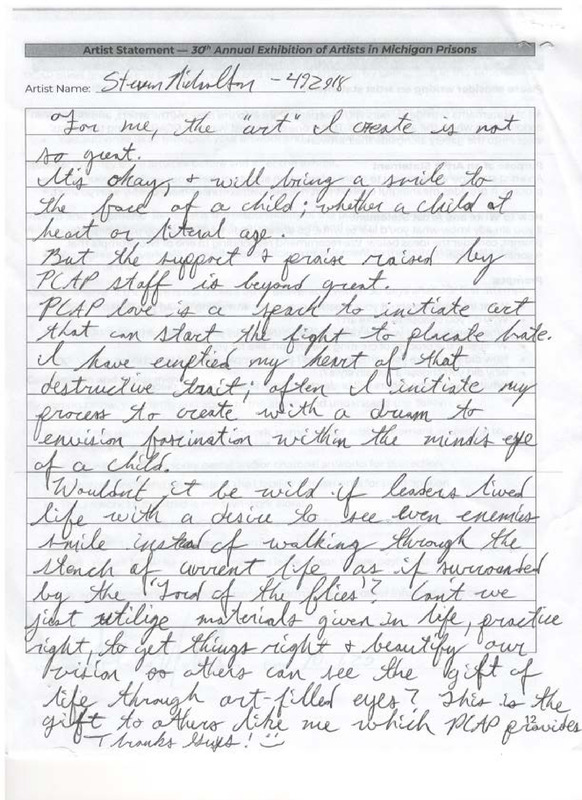 Artist Statement — 30th Annual Exhibition of Artists in Michigan Prisons
Artist Name: Steven Nicholson - 492918
For me, the "art" I create is not
so great.
It's okay, & will bring a smile to
the face of a child; whether a child at
heart or literal age.
But the support & praise raised by
PCAP staff is beyond great.
PCAP love is a spark to initiate art
that can start the fight to placate hate.
I have emptied my heart of that
destructive trait; often I initiate my
process to create with a dream to
envision fascination within the mind's eye
of a child.
Wouldn't it be wild if leaders lived
life with a desire to see even enemies
smile instead of walking through the
stench of current life as if surrounded
by the "Lord of the flies"? Can't we
just utilize materials given in life, practice
right, to get things right & beautify our
vision so others can see the gift of
life through art-filled eyes? This is the
gift to others like me which PCAP provides
12
Thanks Guys!